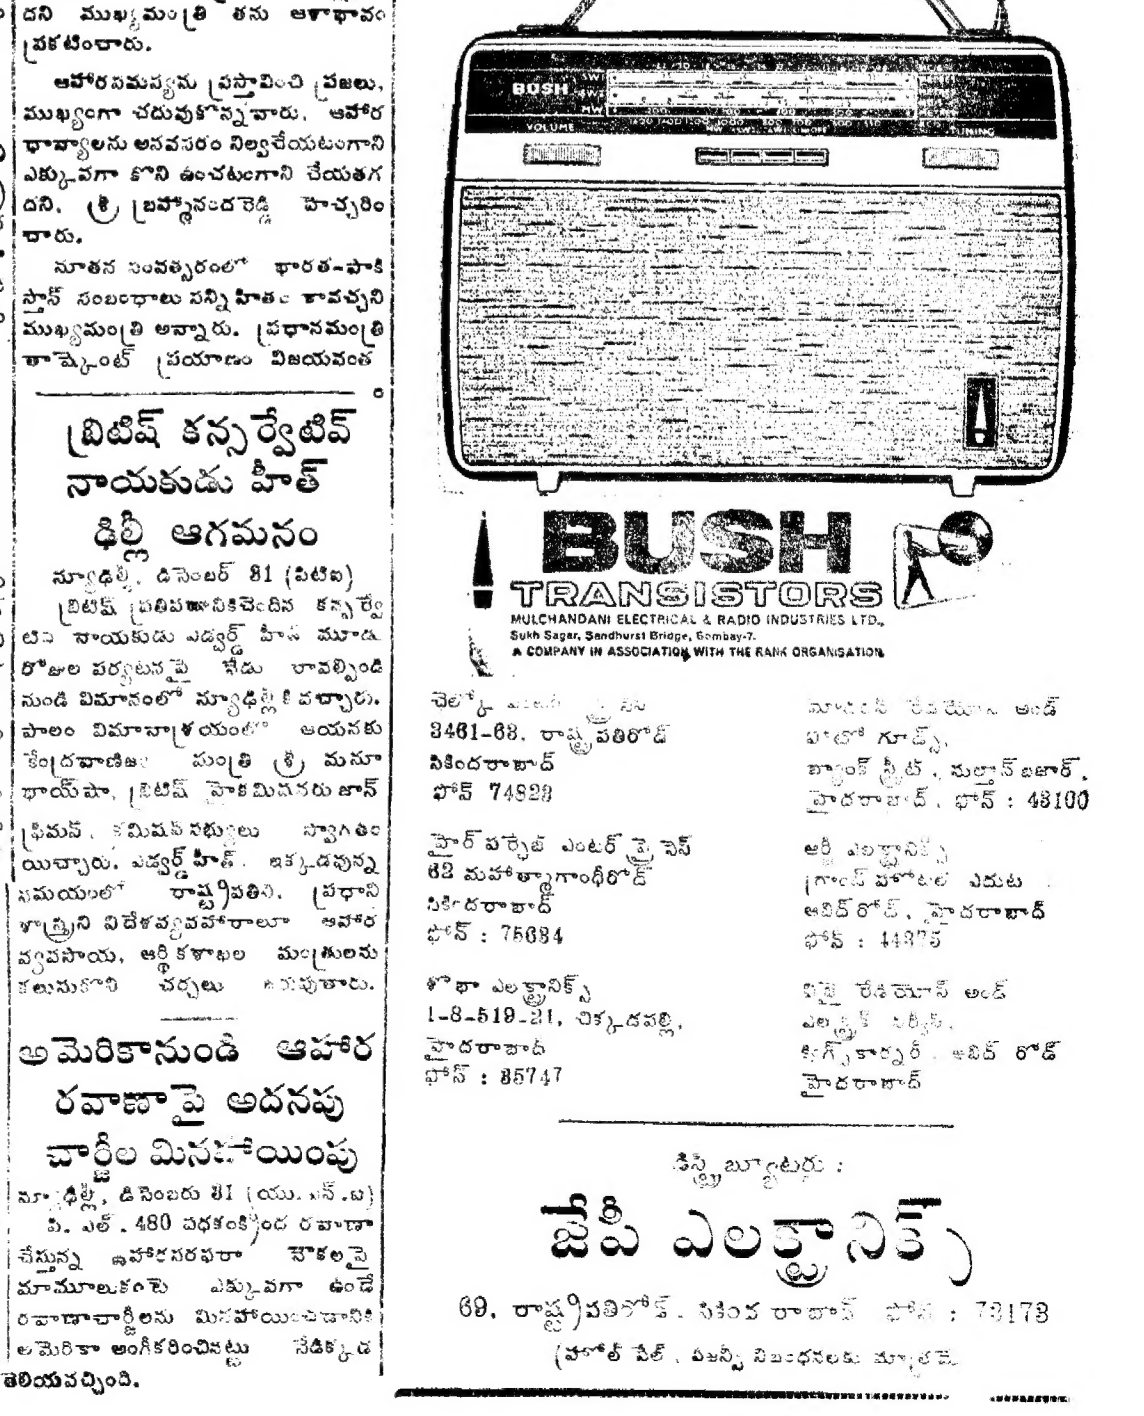 దని ముఖ్యమంత్రి తను ఆశాభావం
ప్రకటించారు.
ఆహారసమస్యను ప్రస్తావించి ప్రజలు,
ముఖ్యంగా చదువుకొన్నవారు, ఆహార
ధాన్యాలను అనవసరం నిల్వచేయటంగాని
ఎక్కువగా కొని ఉంచటంగాని చేయతగ
దని, శ్రీ బ్రహ్మానందరెడ్డి హెచ్చరిం
చారు.
నూతన సంవత్సరంలో భారత-పాకి
స్తాన్ సంబంధాలు సన్నిహితం కావచ్చని
ముఖ్యమంత్రి అన్నారు. ప్రధానమంత్రి
తాష్కెంట్ ప్రయాణం విజయవంత
బ్రిటిష్ కన్సర్వేటివ్
నాయకుడు హీత్
ఢిల్లీ ఆగమనం
న్యూఢిల్లీ, డిసెంబర్ 31 (పిటిఐ)
బ్రిటిష్ ప్రతిపక్షానికిచెందిన కన్సర్వే
టివ్ నాయకుడు ఎడ్వర్డ్ హీత్ మూడు
రోజుల పర్యటనపై నేడు రావల్పిండి
నుండి విమానంలో న్యూఢిల్లీకి వచ్చారు.
పాలం విమానాశ్రయంలో ఆయనకు
కేంద్రవాణిజ్య మంత్రి శ్రీ మనూ
భాయ్‌షా, బ్రిటిష్ హైకమిషనరు జాన్
ఫ్రీమన్, కమిషన్ సభ్యులు స్వాగతం
యిచ్చారు. ఎడ్వర్డ్ హీత్, ఇక్కడవున్న
సమయంలో రాష్ట్రపతిని, ప్రధాని
శాస్త్రిని విదేశవ్యవహారాలూ ఆహార
వ్యవసాయ, ఆర్థికశాఖల మంత్రులను
కలుసుకొని చర్చలు జరుపుతారు.
అమెరికానుండి ఆహార
రవాణాపై అదనపు
చార్జీల మినహాయింపు
న్యూఢిల్లీ, డిసెంబరు 31 (యు.ఎన్.ఐ)
పి. ఎల్. 480 పధకంక్రింద రవాణా
చేస్తున్న ఆహారసరఫరా నౌకలపై
మామూలుకంటె ఎక్కువగా ఉండే
రవాణాచార్జీలను మినహాయించడానికి
అమెరికా అంగీకరించినట్టు నేడిక్కడ
తెలియవచ్చింది.
BUSH
VOLUME
TUNING
BUSH
TRANSISTORS
MULCHANDANI ELECTRICAL & RADIO INDUSTRIES LTD.,
Sukh Sagar, Sandhurst Bridge, Bombay-7.
A COMPANY IN ASSOCIATION WITH THE RANK ORGANISATION
చెల్
3461-63, రాష్ట్రపతిరోడ్
సికిందరాబాద్
ఫోన్ 74823
హైర్ పర్చేజ్ ఎంటర్ ప్రైసెస్
62 మహాత్మాగాంధీరోడ్
సికిందరాబాద్
ఫోన్ : 75684
శోభా ఎలక్ట్రానిక్స్
1-8-519-21, చిక్కడపల్లి,
హైదరాబాద్
ఫోన్ : 35747
రేడియోస్ అండ్
ఫోటో గూడ్స్,
బ్యాంక్ స్ట్రీట్, సుల్తాన్ బజార్,
హైదరాబాద్, ఫోన్ : 43100
ఆర్జీ ఎలక్ట్రానిక్స్
గ్రాండ్ హోటల్ ఎదుట
ఆబిద్ రోడ్, హైదరాబాద్
ఫోన్ : 44375
విజై రేడియోస్ అండ్
ఎలక్ట్రిక్ సర్వీస్,
కింగ్స్ కార్నర్, ఆబిద్ రోడ్
హైదరాబాద్
డిస్ట్రిబ్యూటర్లు :
జేపీ ఎలక్ట్రానిక్స్
69, రాష్ట్రపతిరోడ్, సికింద రాబాద్ ఫోన్ : 73173
(హోల్ సేల్, ఏజన్సీ నిబంధనలకు